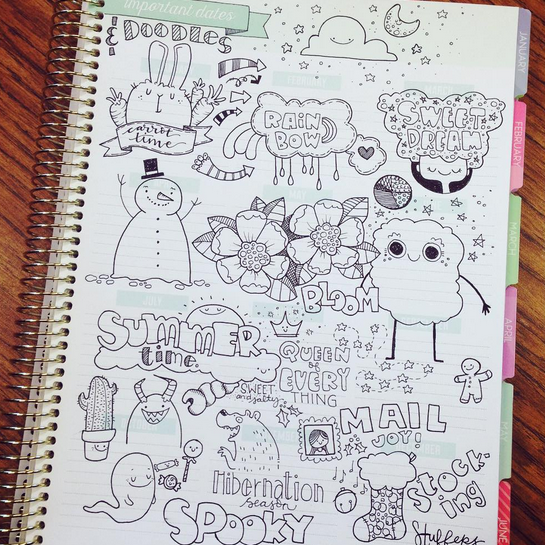 important dates
& Doodles
JANUARY
FEBRUARY
MARCH
APRIL
MAY
JUNE
FEBRUARY
carrot
time
RAIN
BOW
SWEET
DREAM
BLOOM
JULY
SUMMER
time.
QUEEN
of
EVERY
THING
SWEET
and salty
MAIL
JOY!
Hibernation
season
SPOOKY
Stock-
ing
Stuffers